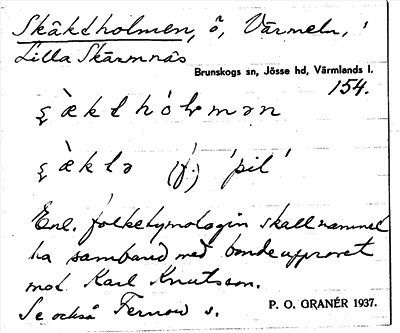 Skäktholmen, ö, Värmeln, i
Lilla Skärmnäs
Brunskogs sn, Jösse hd, Värmlands l.
154.
(f.) 'pil'
Enl. folketymologin skall namnet
ha samband med bondeupproret
mot Karl Knutsson.
Se också Fernow s.
P. O. GRANÉR 1937.